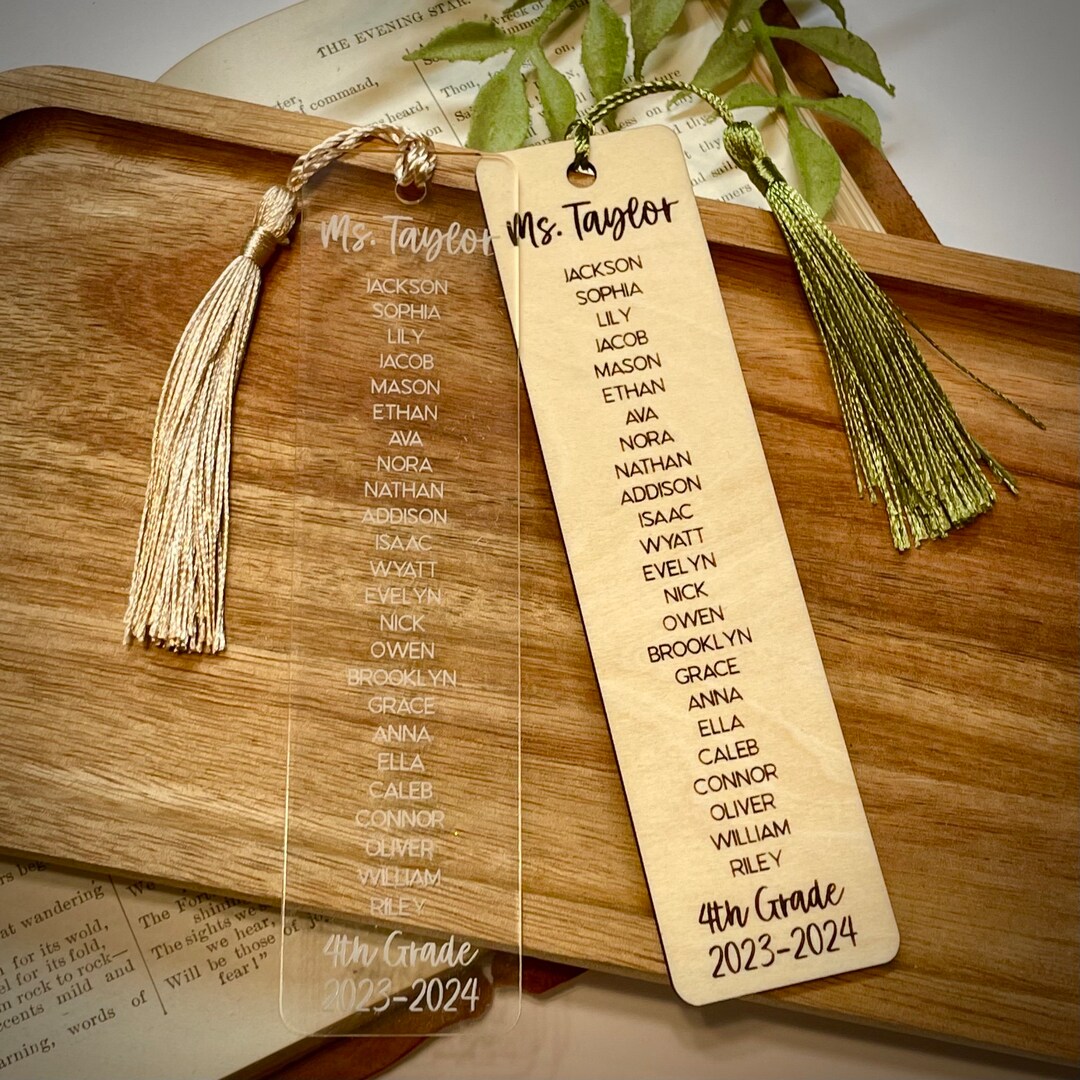 THE EVENING STAR.
command,
heard,
Thou,
Ms. Taylor
JACKSON
SOPHIA
LILY
JACOB
MASON
ETHAN
AVA
NORA
NATHAN
ADDISON
ISAAC
WYATT
EVELYN
NICK
OWEN
BROOKLYN
GRACE
ANNA
ELLA
CALEB
CONNOR
OLIVER
WILLIAM
RILEY
4th Grade
2023-2024
Ms. Taylor
JACKSON
SOPHIA
LILY
JACOB
MASON
ETHAN
AVA
NORA
NATHAN
ADDISON
ISAAC
WYATT
EVELYN
NICK
OWEN
BROOKLYN
GRACE
ANNA
ELLA
CALEB
CONNOR
OLIVER
WILLIAM
RILEY
4th Grade
2023-2024
at wandering
for its wold,
for its fold,
rock to rock—
mild and
words of
The
The sights we
we hear,
Will be those of
fear!"